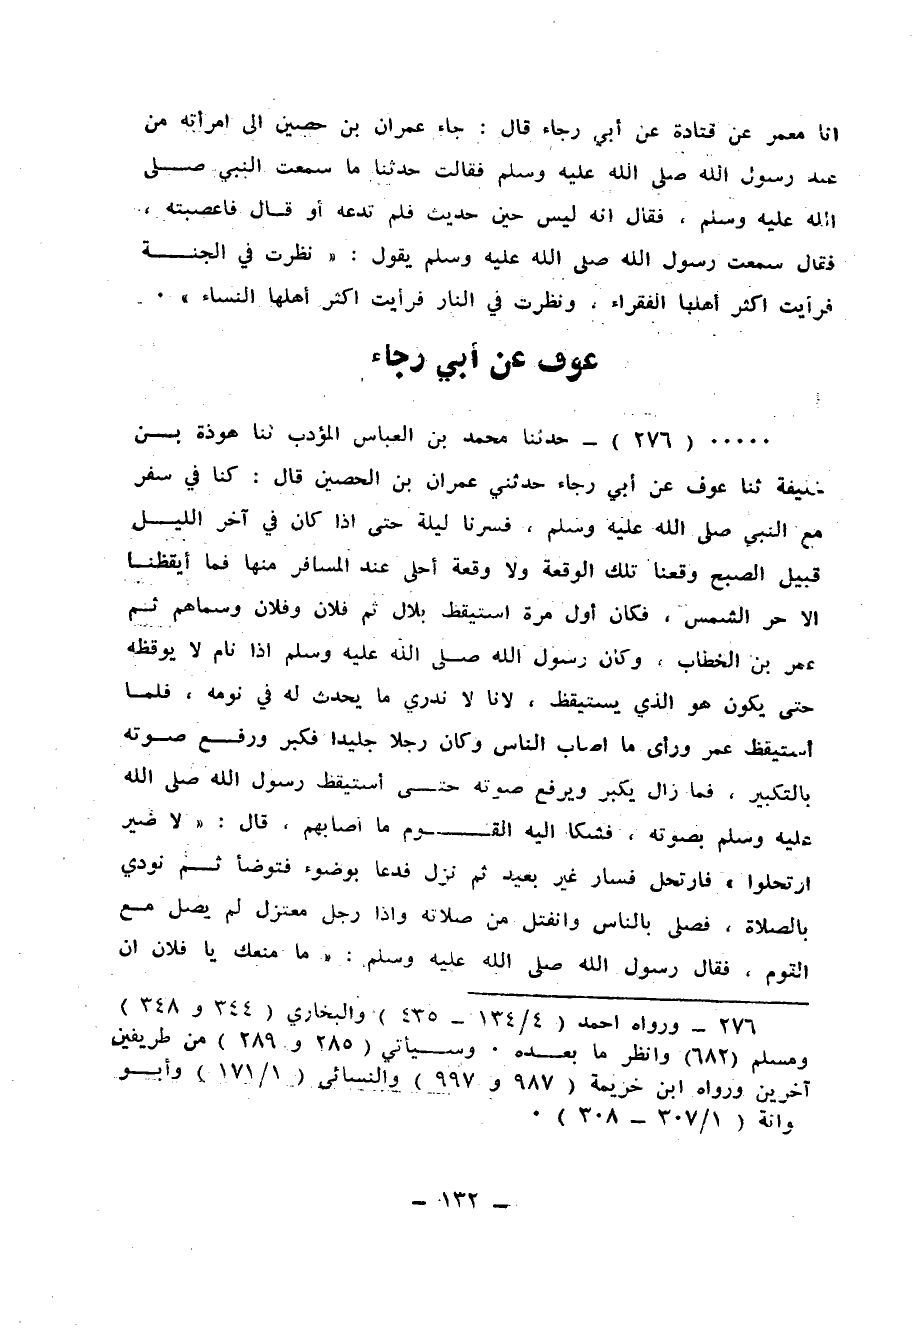 انا معمر عن قتادة عن أبي رجاء قال : جاء عمران بن حصين الى امرأته من
عند رسول الله صلى الله عليه وسلم فقالت حدثنا ما سمعت النبي صلى
الله عليه وسلم ، فقال انه ليس حين حديث فلم تدعه أو قال فاعصبته ،
فقال سمعت رسول الله صلى الله عليه وسلم يقول : « نظرت في الجنة
فرأيت اكثر أهلها الفقراء ، ونظرت في النار فرأيت اكثر أهلها النساء » ٠
عوف عن أبي رجاء
٠٠٠٠٠ ( ٢٧٦ ) ـ حدثنا محمد بن العباس المؤدب ثنا هوذة بن
خليفة ثنا عوف عن أبي رجاء حدثني عمران بن الحصين قال : كنا في سفر
مع النبي صلى الله عليه وسلم ، فسرنا ليلة حتى اذا كان في آخر الليل
قبيل الصبح وقعنا تلك الوقعة ولا وقعة أحلى عند المسافر منها فما أيقظنا
الا حر الشمس ، فكان أول مرة استيقظ بلال ثم فلان وفلان وسماهم ثم
عمر بن الخطاب ، وكان رسول الله صلى الله عليه وسلم اذا نام لا يوقظه
حتى يكون هو الذي يستيقظ ، لانا لا ندري ما يحدث له في نومه ، فلما
أستيقظ عمر ورأى ما اصاب الناس وكان رجلا جليدا فكبر ورفع صوته
بالتكبير ، فما زال يكبر ويرفع صوته حتى أستيقظ رسول الله صلى الله
عليه وسلم بصوته ، فشكا اليه القوم ما أصابهم ، قال : « لا ضير
ارتحلوا » فارتحل فسار غير بعيد ثم نزل فدعا بوضوء فتوضأ ثم نودي
بالصلاة ، فصلى بالناس وانفتل من صلاته واذا رجل معتزل لم يصل مع
القوم ، فقال رسول الله صلى الله عليه وسلم : « ما منعك يا فلان ان
٢٧٦ ـ ورواه احمد ( ١٣٤/٤ ـ ٤٣٥ ) والبخاري ( ٣٤٤ و ٣٤٨ )
ومسلم (٦٨٢) وانظر ما بعده ٠ وسيأتي ( ٢٨٥ و ٢٨٩ ) من طريفين
آخرين ورواه ابن خزيمة ( ٩٨٧ و ٩٩٧ ) والنسائى ( ١٧١/١ ) وأبو
وانة ( ٣٠٧/١ ـ ٣٠٨ ) ٠
ـ ١٣٢ ـ